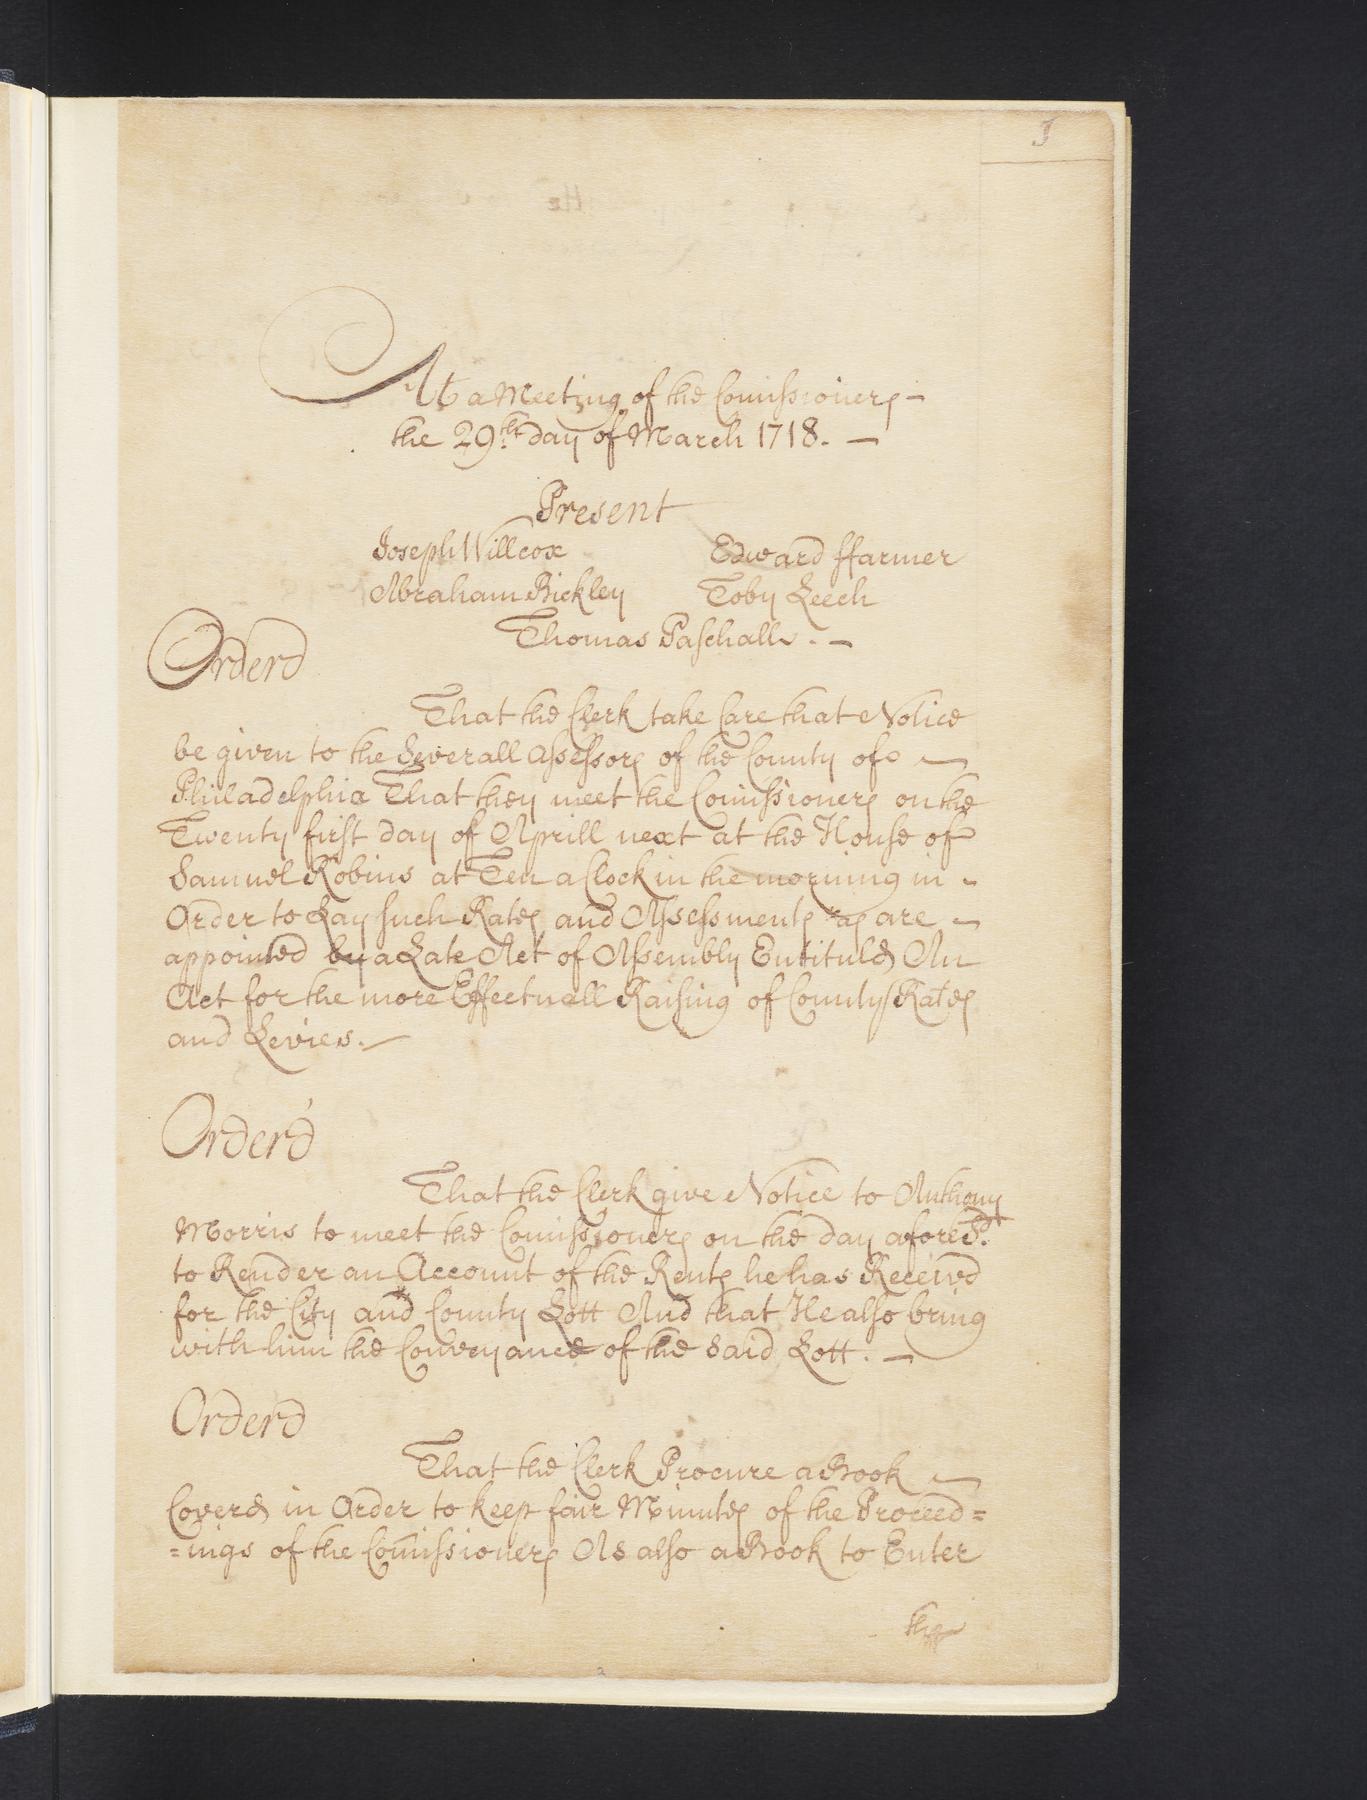 1
At a Meeting of the Comissioners
the 29th day of March 1718.
Present
Joseph Willcox Edward ffarmer
Abraham Bickley Toby Leech
Thomas Paschall.
Orderd
That the Clerk take Care that Notice
be given to the Severall assessors of the County of
Philadelphia That they meet the Comissioners on the
Twenty first day of Aprill next at the House of
Samuel Robins at Ten a Clock in the morning in
Order to Lay such Rates and Assessments as are
appointed by a Late Act of Assembly Entituled An
Act for the more Effectuall Raising of County Rates
and Levies.
Order'd
That the Clerk give Notice to Anthony
Morris to meet the Comissioners on the day afores.d
to Render an Account of the Rents he has Received
for the City and County Lott And that He also bring
with him the Conveyance of the said Lott.
Orderd
That the Clerk Procure a Book
Covered in Order to keep fair Minutes of the Proceed=
=ings of the Comissioners As also a Book to Enter
the